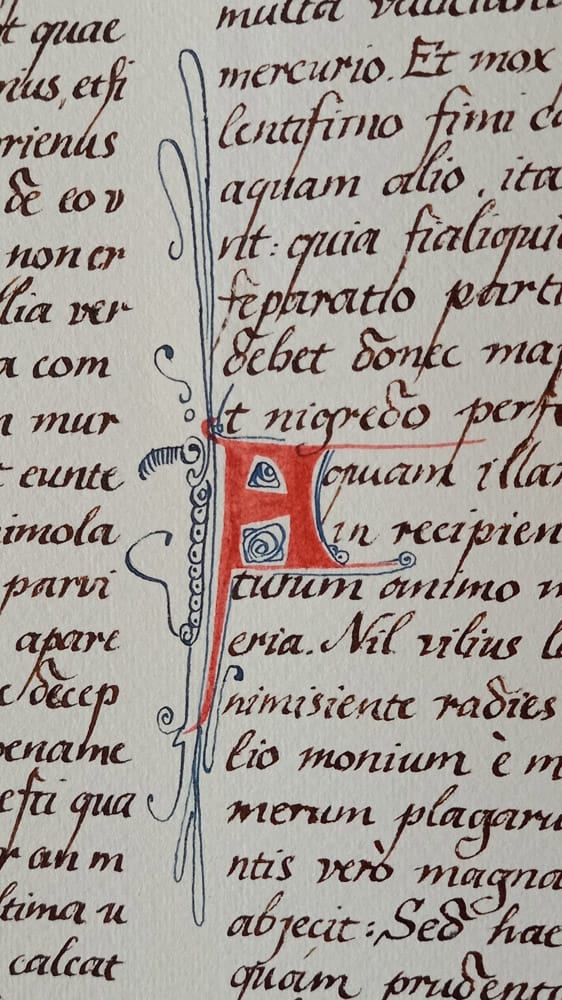 t quae
nius, etsi
rienus
de eo v
non er
lia ver
a com
n mur
t eunte
imola
parvi
apare
c decep
name
efti qua
r an m
ltima u
calcat
multa
mercurio. Et mox
lentisimo fimi
aquam alio, ita
nt: quia fialiqui
separatio parti
debet donec
t nigredo perfe
Aquam illa
in recipien
turum animo
eria. Nil vilius
nimisiente radies
lio monium è m
merum plagaru
ntis verò magna
abjecit: Sed hae
quám prudent